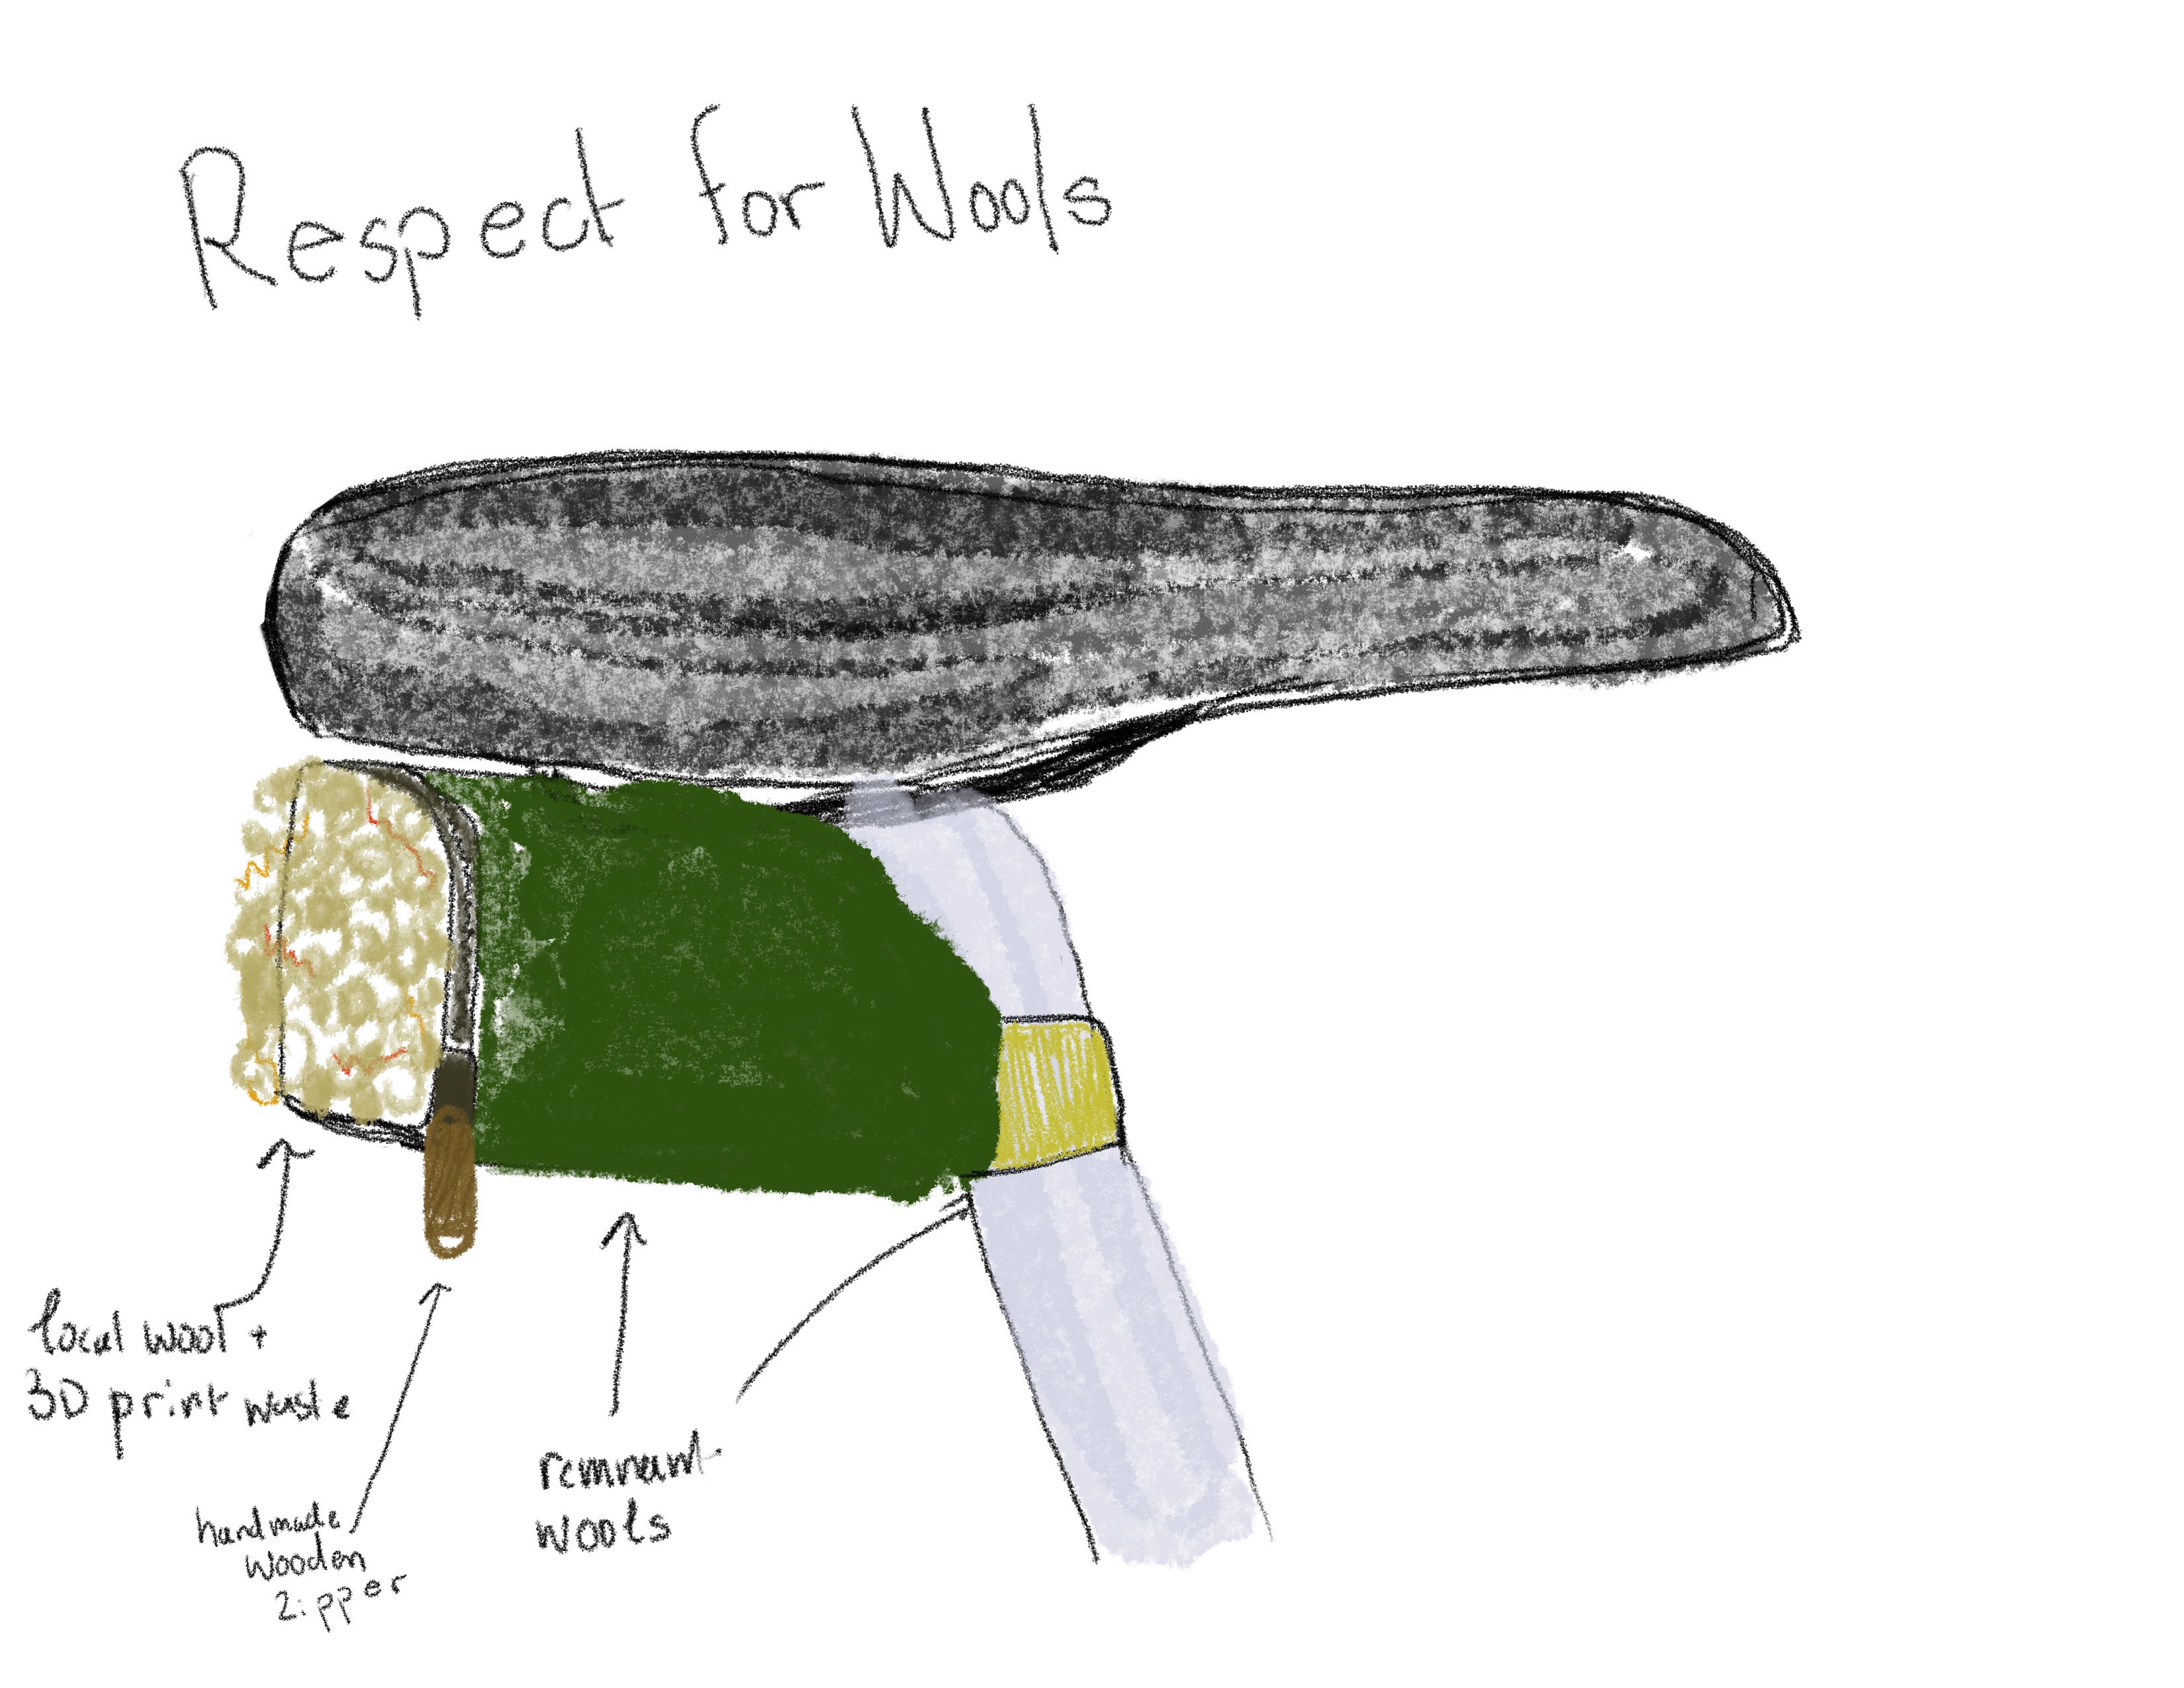 Respect for Wools
local wool +
3D print waste
handmade
wooden
zipper
remnant
wools